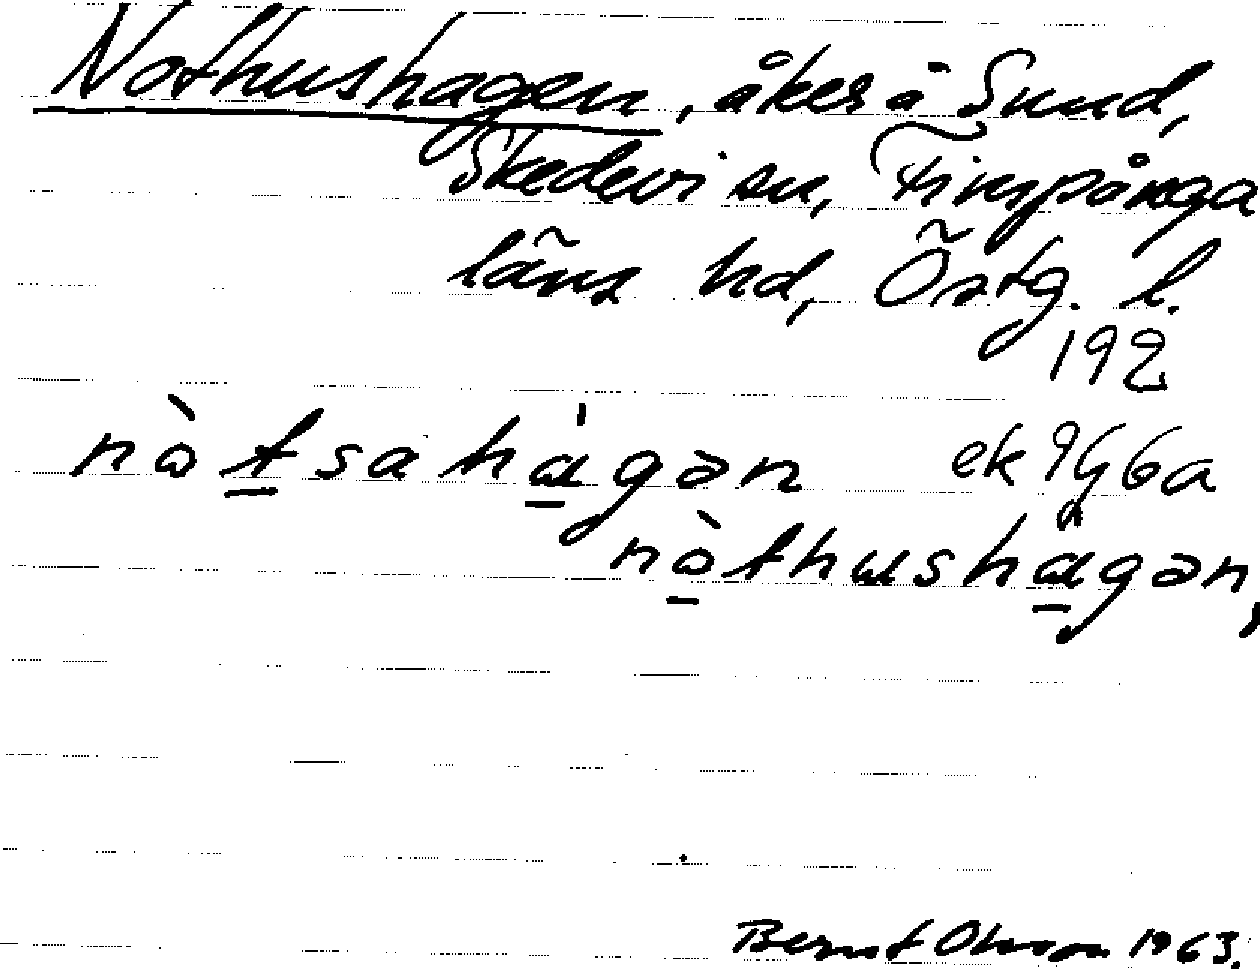 Nothushagen, åker å Sund,
Skedevi sn, Finspånga
läns hd, Östg. l.
192
nòtsahá̱gən ek 9G6a
nòthushágən,
Bernt Olsson 1963.